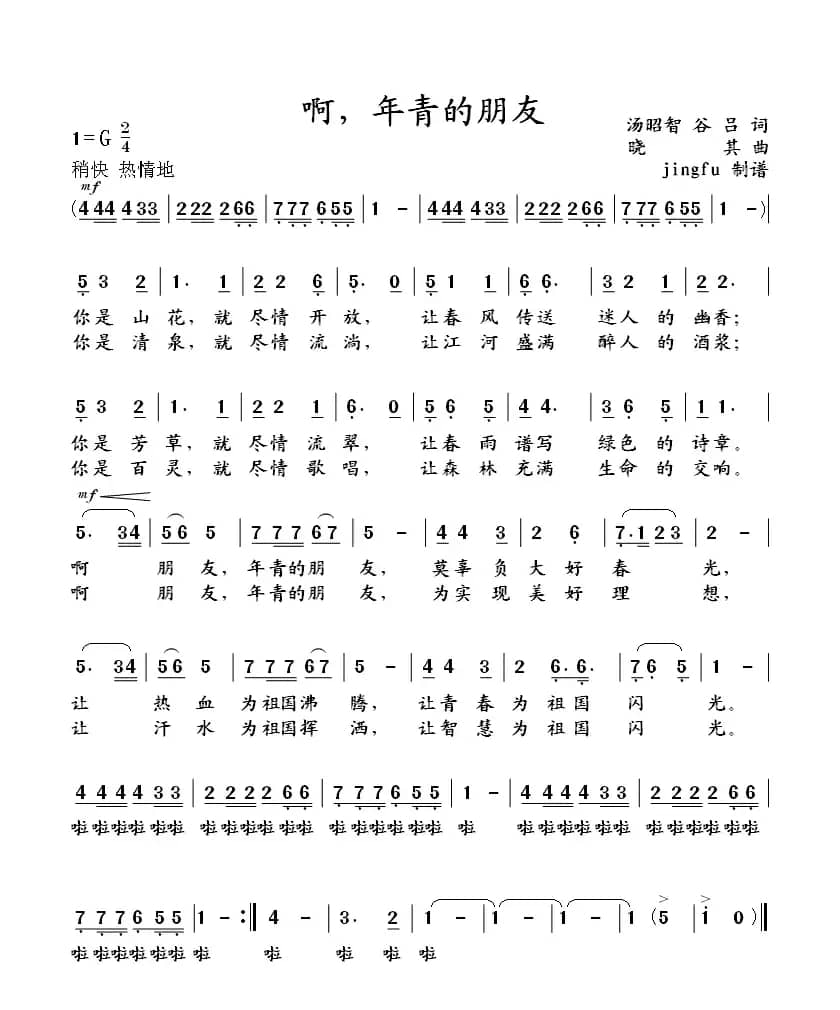 啊，年青的朋友
1=G 2/4
汤昭智 谷 吕 词
晓 其 曲
稍快 热情地
jingfu 制谱
mf
(4 44 4 33 | 2 22 2 66 | 7 77 6 55 | 1 - | 4 44 4 33 | 2 22 2 66 | 7 77 6 55 | 1 - )|
5 3 2 | 1. 1 | 2 2 6 | 5. 0 | 5 1 1 | 6 6. | 3 2 1 | 2 2. |
你是 山 花，就 尽情 开 放， 让春 风 传送 迷人 的 幽香；
你是 清 泉，就 尽情 流 淌， 让江 河 盛满 醉人 的 酒浆；
5 3 2 | 1. 1 | 2 2 1 | 6. 0 | 5 6 5 | 4 4. | 3 6 5 | 1 1. |
你是 芳 草，就 尽情 流 翠， 让春 雨 谱写 绿色 的 诗章。
你是 百 灵，就 尽情 歌 唱， 让森 林 充满 生命 的 交响。
mf
5. 34 | 56 5 | 7 7 7 67 | 5 - | 4 4 3 | 2 6 | 7.1 23 | 2 - |
啊 朋 友，年青的朋 友， 莫辜 负 大 好 春 光，
啊 朋 友，年青的朋 友， 为实 现 美 好 理 想，
5. 34 | 56 5 | 7 7 7 67 | 5 - | 4 4 3 | 2 6.6. | 76 5 | 1 - |
让 热 血 为祖国沸 腾，让青 春 为 祖 国 闪 光。
让 汗 水 为祖国挥 洒，让智 慧 为 祖 国 闪 光。
4 44 4 33 | 2 22 2 66 | 7 77 6 55 | 1 - | 4 44 4 33 | 2 22 2 66 |
啦 啦啦 啦 啦啦 啦 啦啦 啦 啦啦 啦 啦啦 啦 啦啦 啦 啦 啦啦 啦 啦啦 啦 啦啦 啦 啦啦
7 77 6 55 | 1 - :‖ 4 - | 3. 2 | 1 - | 1 - | 1 - | 1 (5 | i 0 )‖
啦 啦啦 啦 啦啦 啦 啦 啦 啦 啦